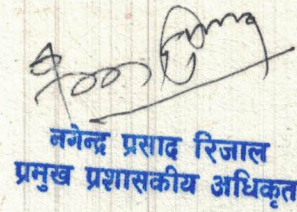 नगेन्द्र प्रसाद रिजाल
प्रमुख प्रशासकीय अधिकृत